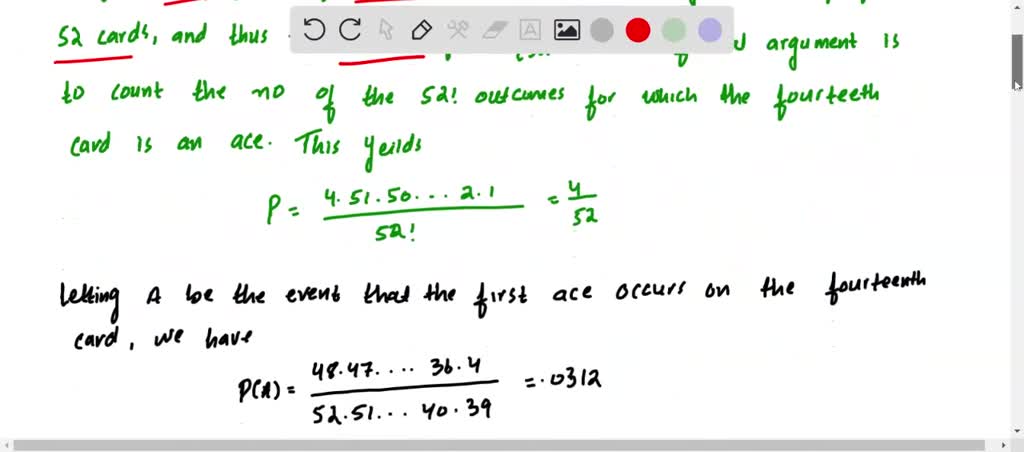 52 cards, and thus argument is
to count the no of the 52! outcomes for which the fourteeth
card is an ace. This yeilds
P = 4.51.50... 2.1 / 52! = 4/52
Letting A be the event that the first ace occurs on the fourteenth
card, we have
P(A) = 48.47.... 36.4 / 52.51... 40.39 = .0312